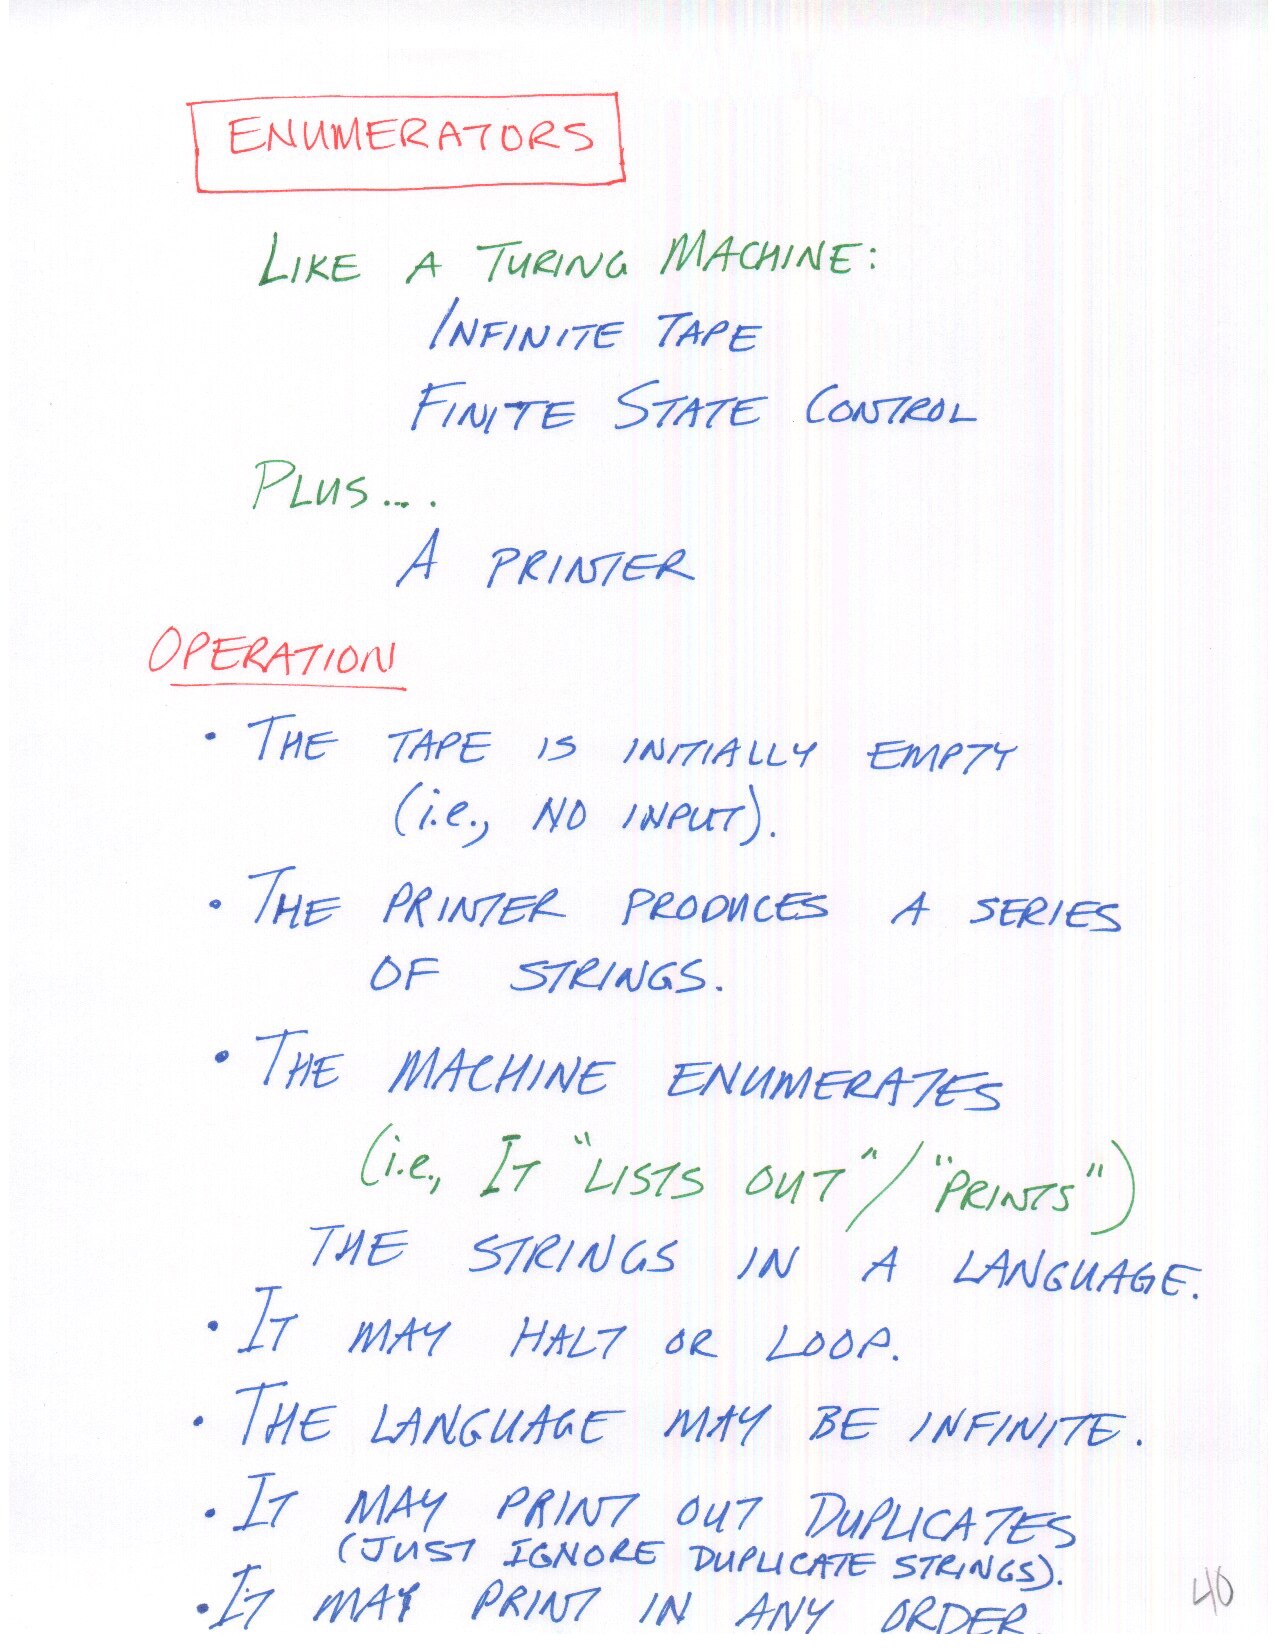 ENUMERATORS
LIKE A TURING MACHINE:
INFINITE TAPE
FINITE STATE CONTROL
PLUS....
A PRINTER
OPERATION
• THE TAPE IS INITIALLY EMPTY
(i.e., NO INPUT).
• THE PRINTER PRODUCES A SERIES
OF STRINGS.
• THE MACHINE ENUMERATES
(i.e., IT "LISTS OUT" / "PRINTS")
THE STRINGS IN A LANGUAGE.
• IT MAY HALT OR LOOP.
• THE LANGUAGE MAY BE INFINITE.
• IT MAY PRINT OUT DUPLICATES
(JUST IGNORE DUPLICATE STRINGS).
• IT MAY PRINT IN ANY ORDER.
40